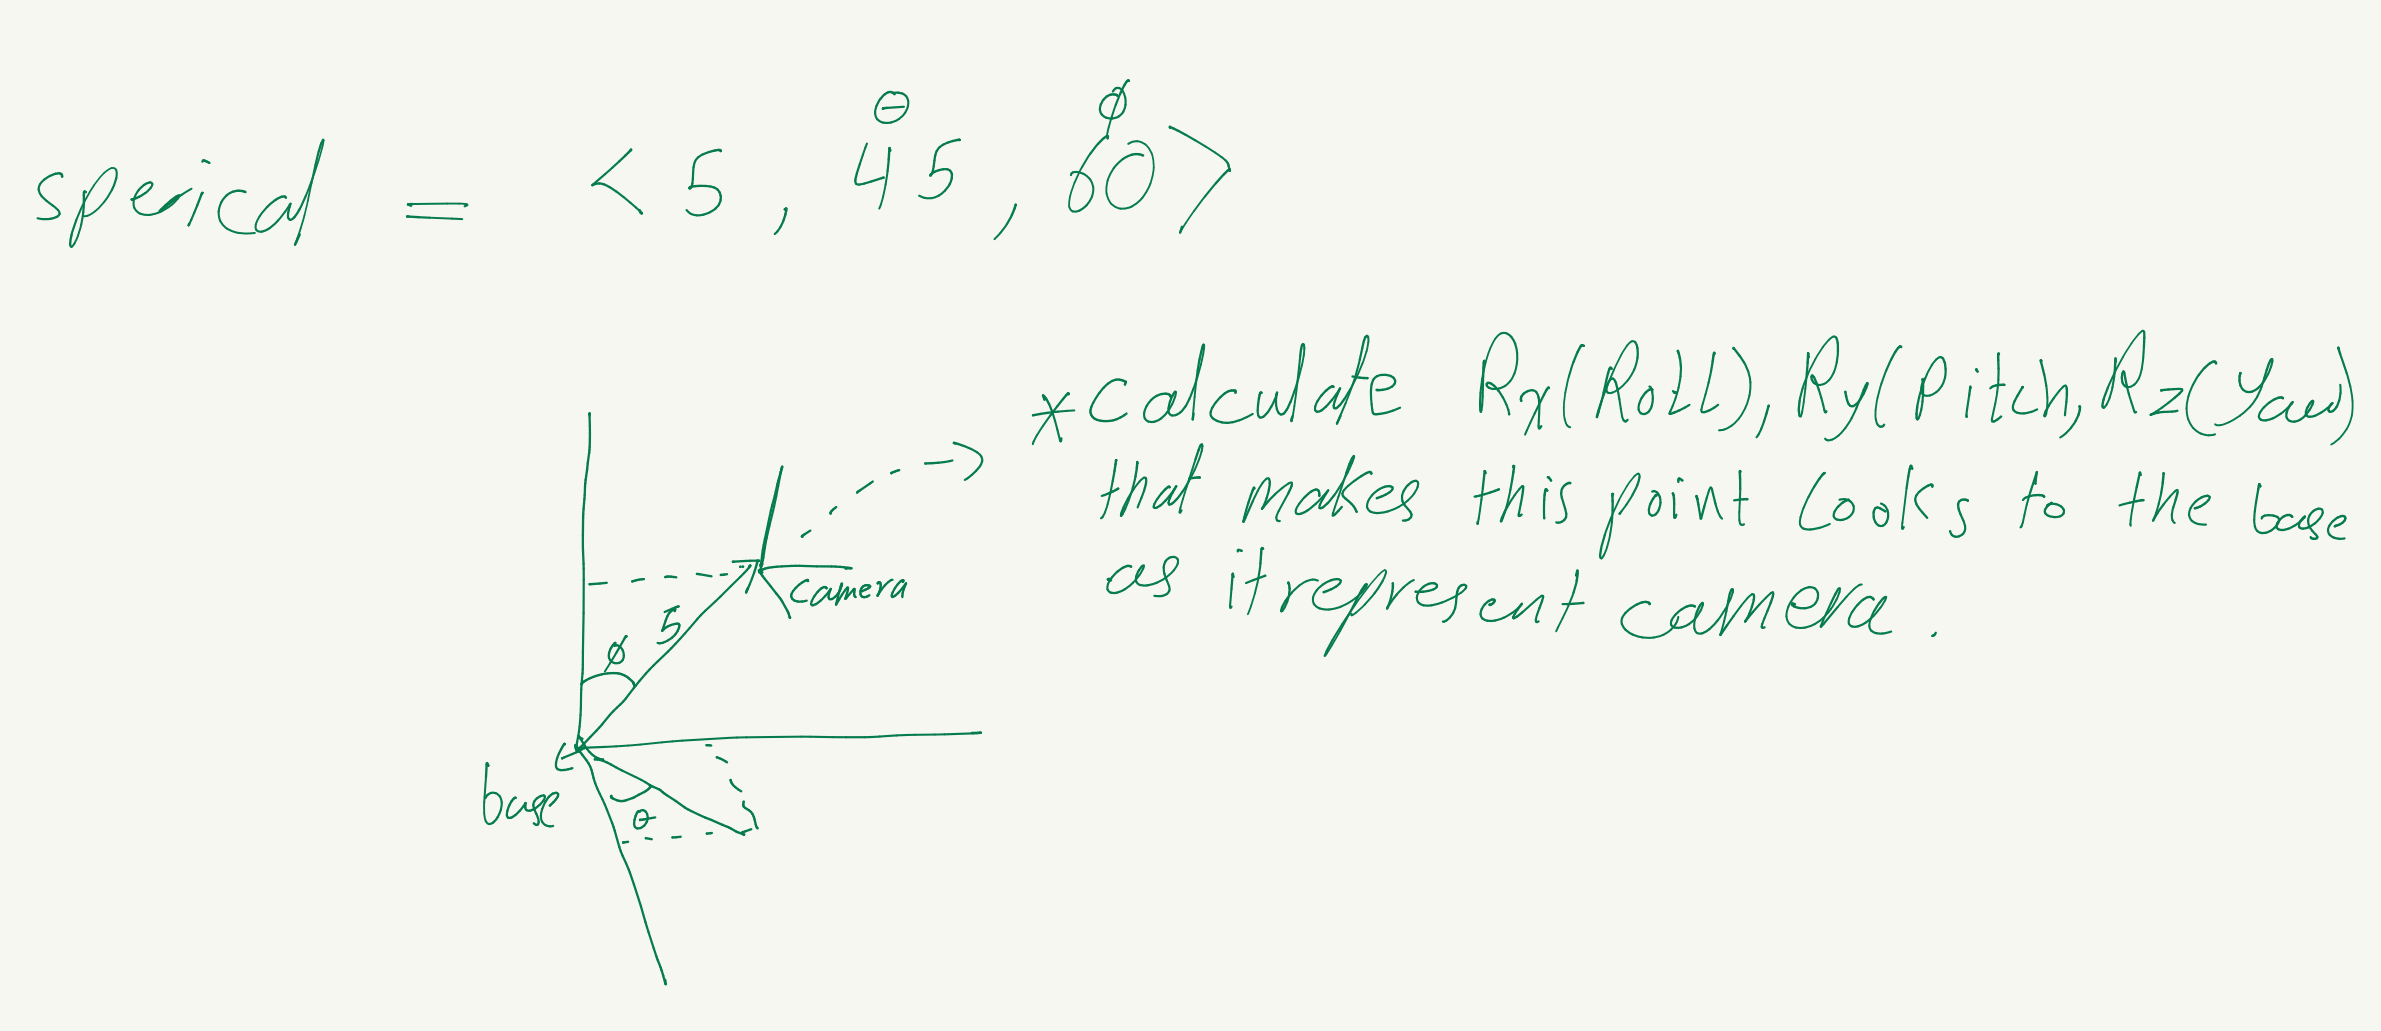 θ ϕ
sperical = < 5 , 45 , 60 >
*Calculate Rx(Roll), Ry(Pitch, Rz(Yaw)
that makes this point Looks to the base
as it represent camera.
camera
5
ϕ
base
θ